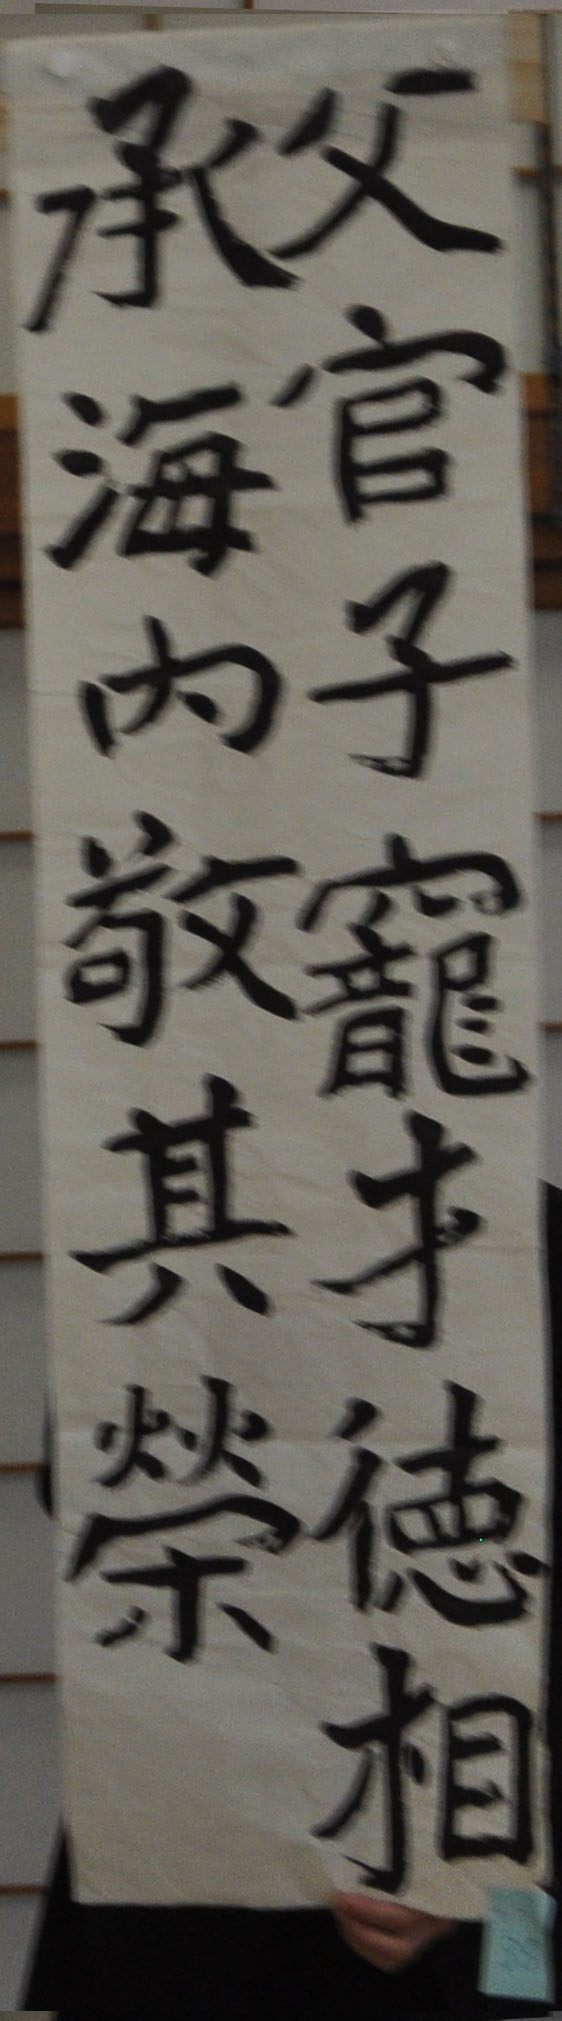 父官子寵才徳相
承海内敬其榮